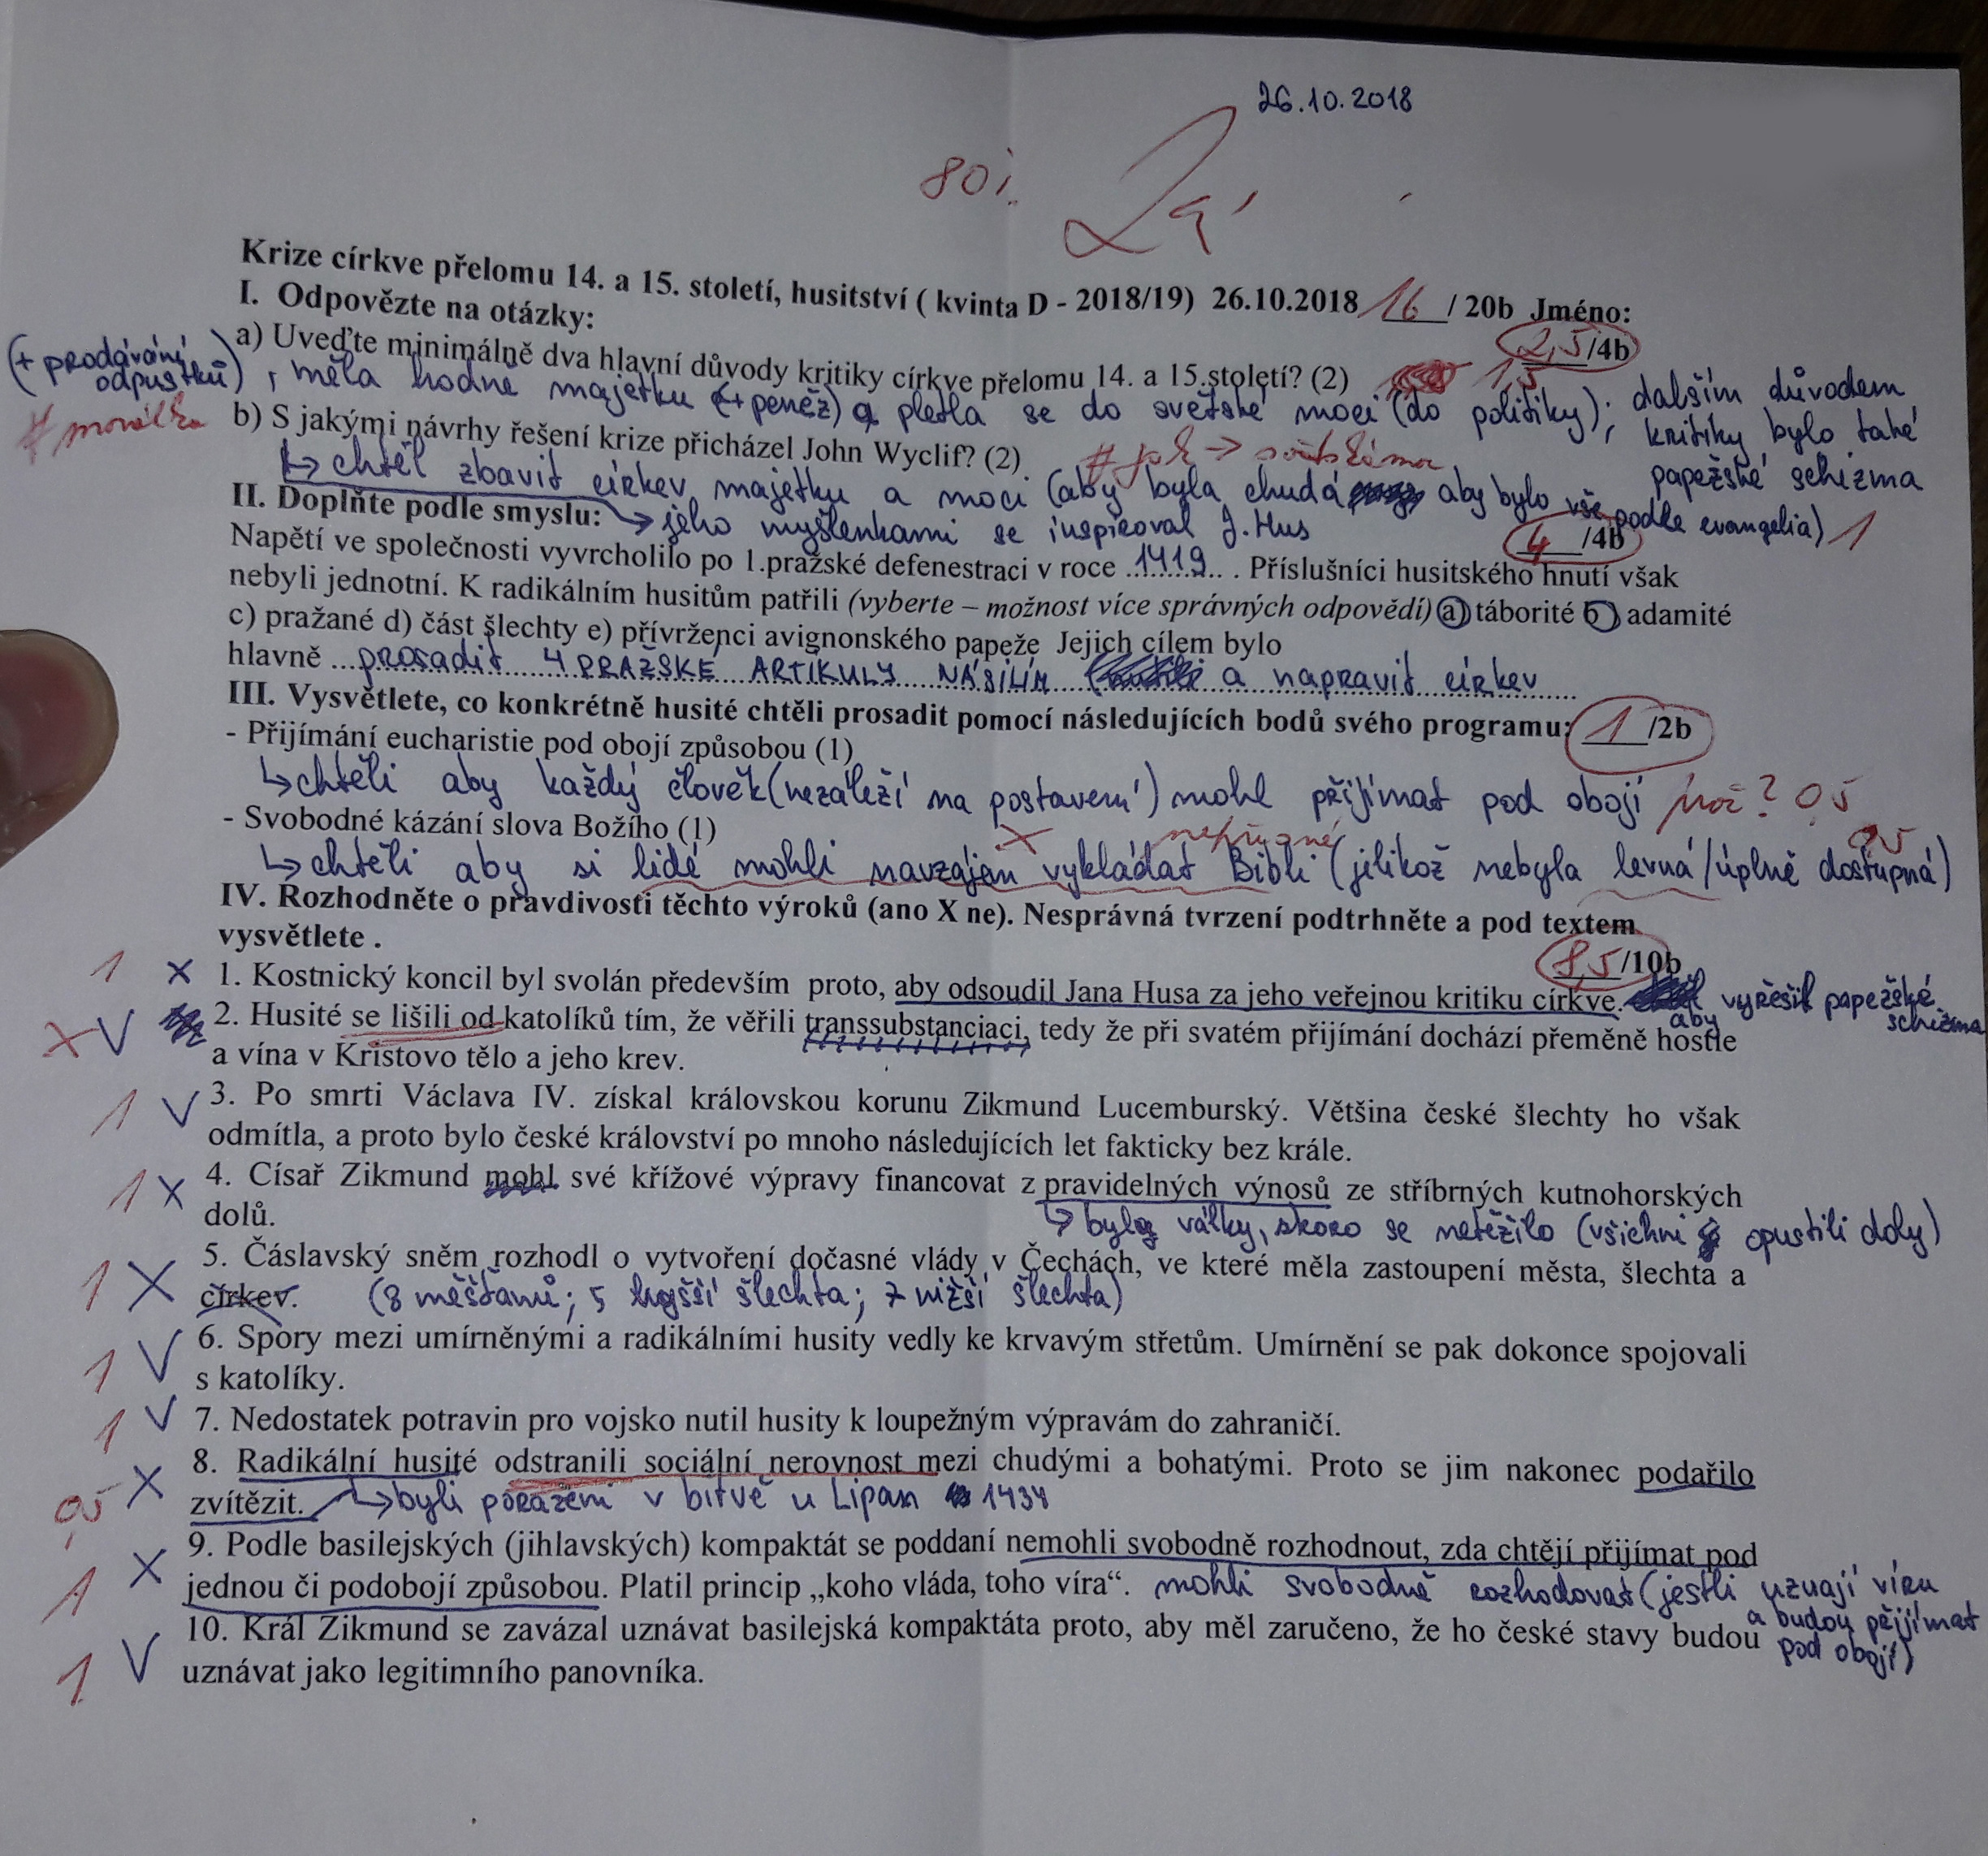 26.10.2018
Krize církve přelomu 14. a 15. století, husitství ( kvinta D - 2018/19) 26.10.2018 16 / 20b Jméno:
I. Odpovězte na otázky:
2,5/4b
a) Uveďte minimálně dva hlavní důvody kritiky církve přelomu 14. a 15.století? (2) 1,5
(+ prodávání odpustků), měla hodně majetku (+ peněz) a pletla se do světské moci (do politiky); dalším důvodem
kritiky bylo také
papežské schizma
# morálka
b) S jakými návrhy řešení krize přicházel John Wyclif? (2)
↳ chtěl zbavit církev majetku a moci (aby byla chudá aby bylo vše podle evangelia) 1
→ jeho myšlenkami se inspiroval J. Hus
II. Doplňte podle smyslu:
4/4b
Napětí ve společnosti vyvrcholilo po 1.pražské defenestraci v roce 1419 . Příslušníci husitského hnutí však
nebyli jednotní. K radikálním husitům patřili (vyberte – možnost více správných odpovědí) a) táborité b) adamité
c) pražané d) část šlechty e) přívrženci avignonského papeže Jejich cílem bylo
hlavně prosadit 4 PRAŽSKÉ ARTIKULY NÁSILÍM a napravit církev
III. Vysvětlete, co konkrétně husité chtěli prosadit pomocí následujících bodů svého programu: 1/2b
- Přijímání eucharistie pod obojí způsobou (1)
↳ chtěli aby každý člověk (nezáleží na postavení) mohl přijímat pod obojí proč? 0,5
- Svobodné kázání slova Božího (1)
0,5
↳ chtěli aby si lidé mohli navzájem vykládat Bibli (jelikož nebyla levná/úplně dostupná)
IV. Rozhodněte o pravdivosti těchto výroků (ano X ne). Nesprávná tvrzení podtrhněte a pod textem
vysvětlete .
8,5/10b
1 X 1. Kostnický koncil byl svolán především proto, aby odsoudil Jana Husa za jeho veřejnou kritiku církve. aby vyřešil papežské
schizma
X V 2. Husité se lišili od katolíků tím, že věřili transsubstanciaci, tedy že při svatém přijímání dochází přeměně hostie
a vína v Kristovo tělo a jeho krev.
1 V 3. Po smrti Václava IV. získal královskou korunu Zikmund Lucemburský. Většina české šlechty ho však
odmítla, a proto bylo české království po mnoho následujících let fakticky bez krále.
1 X 4. Císař Zikmund mohl své křížové výpravy financovat z pravidelných výnosů ze stříbrných kutnohorských
dolů.
↳ byly války, skoro se netěžilo (všichni opustili doly)
1 X 5. Čáslavský sněm rozhodl o vytvoření dočasné vlády v Čechách, ve které měla zastoupení města, šlechta a
církev. (8 měšťanů; 5 vyšší šlechta; 7 nižší šlechta)
1 V 6. Spory mezi umírněnými a radikálními husity vedly ke krvavým střetům. Umírnění se pak dokonce spojovali
s katolíky.
1 V 7. Nedostatek potravin pro vojsko nutil husity k loupežným výpravám do zahraničí.
0,5 X 8. Radikální husité odstranili sociální nerovnost mezi chudými a bohatými. Proto se jim nakonec podařilo
zvítězit. ↳ byli poraženi v bitvě u Lipan 1434
1 X 9. Podle basilejských (jihlavských) kompaktát se poddaní nemohli svobodně rozhodnout, zda chtějí přijímat pod
jednou či podobojí způsobou. Platil princip „koho vláda, toho víra“. mohli svobodně rozhodovat (jestli uznají víru
a budou přijímat
pod obojí)
1 V 10. Král Zikmund se zavázal uznávat basilejská kompaktáta proto, aby měl zaručeno, že ho české stavy budou
uznávat jako legitimního panovníka.